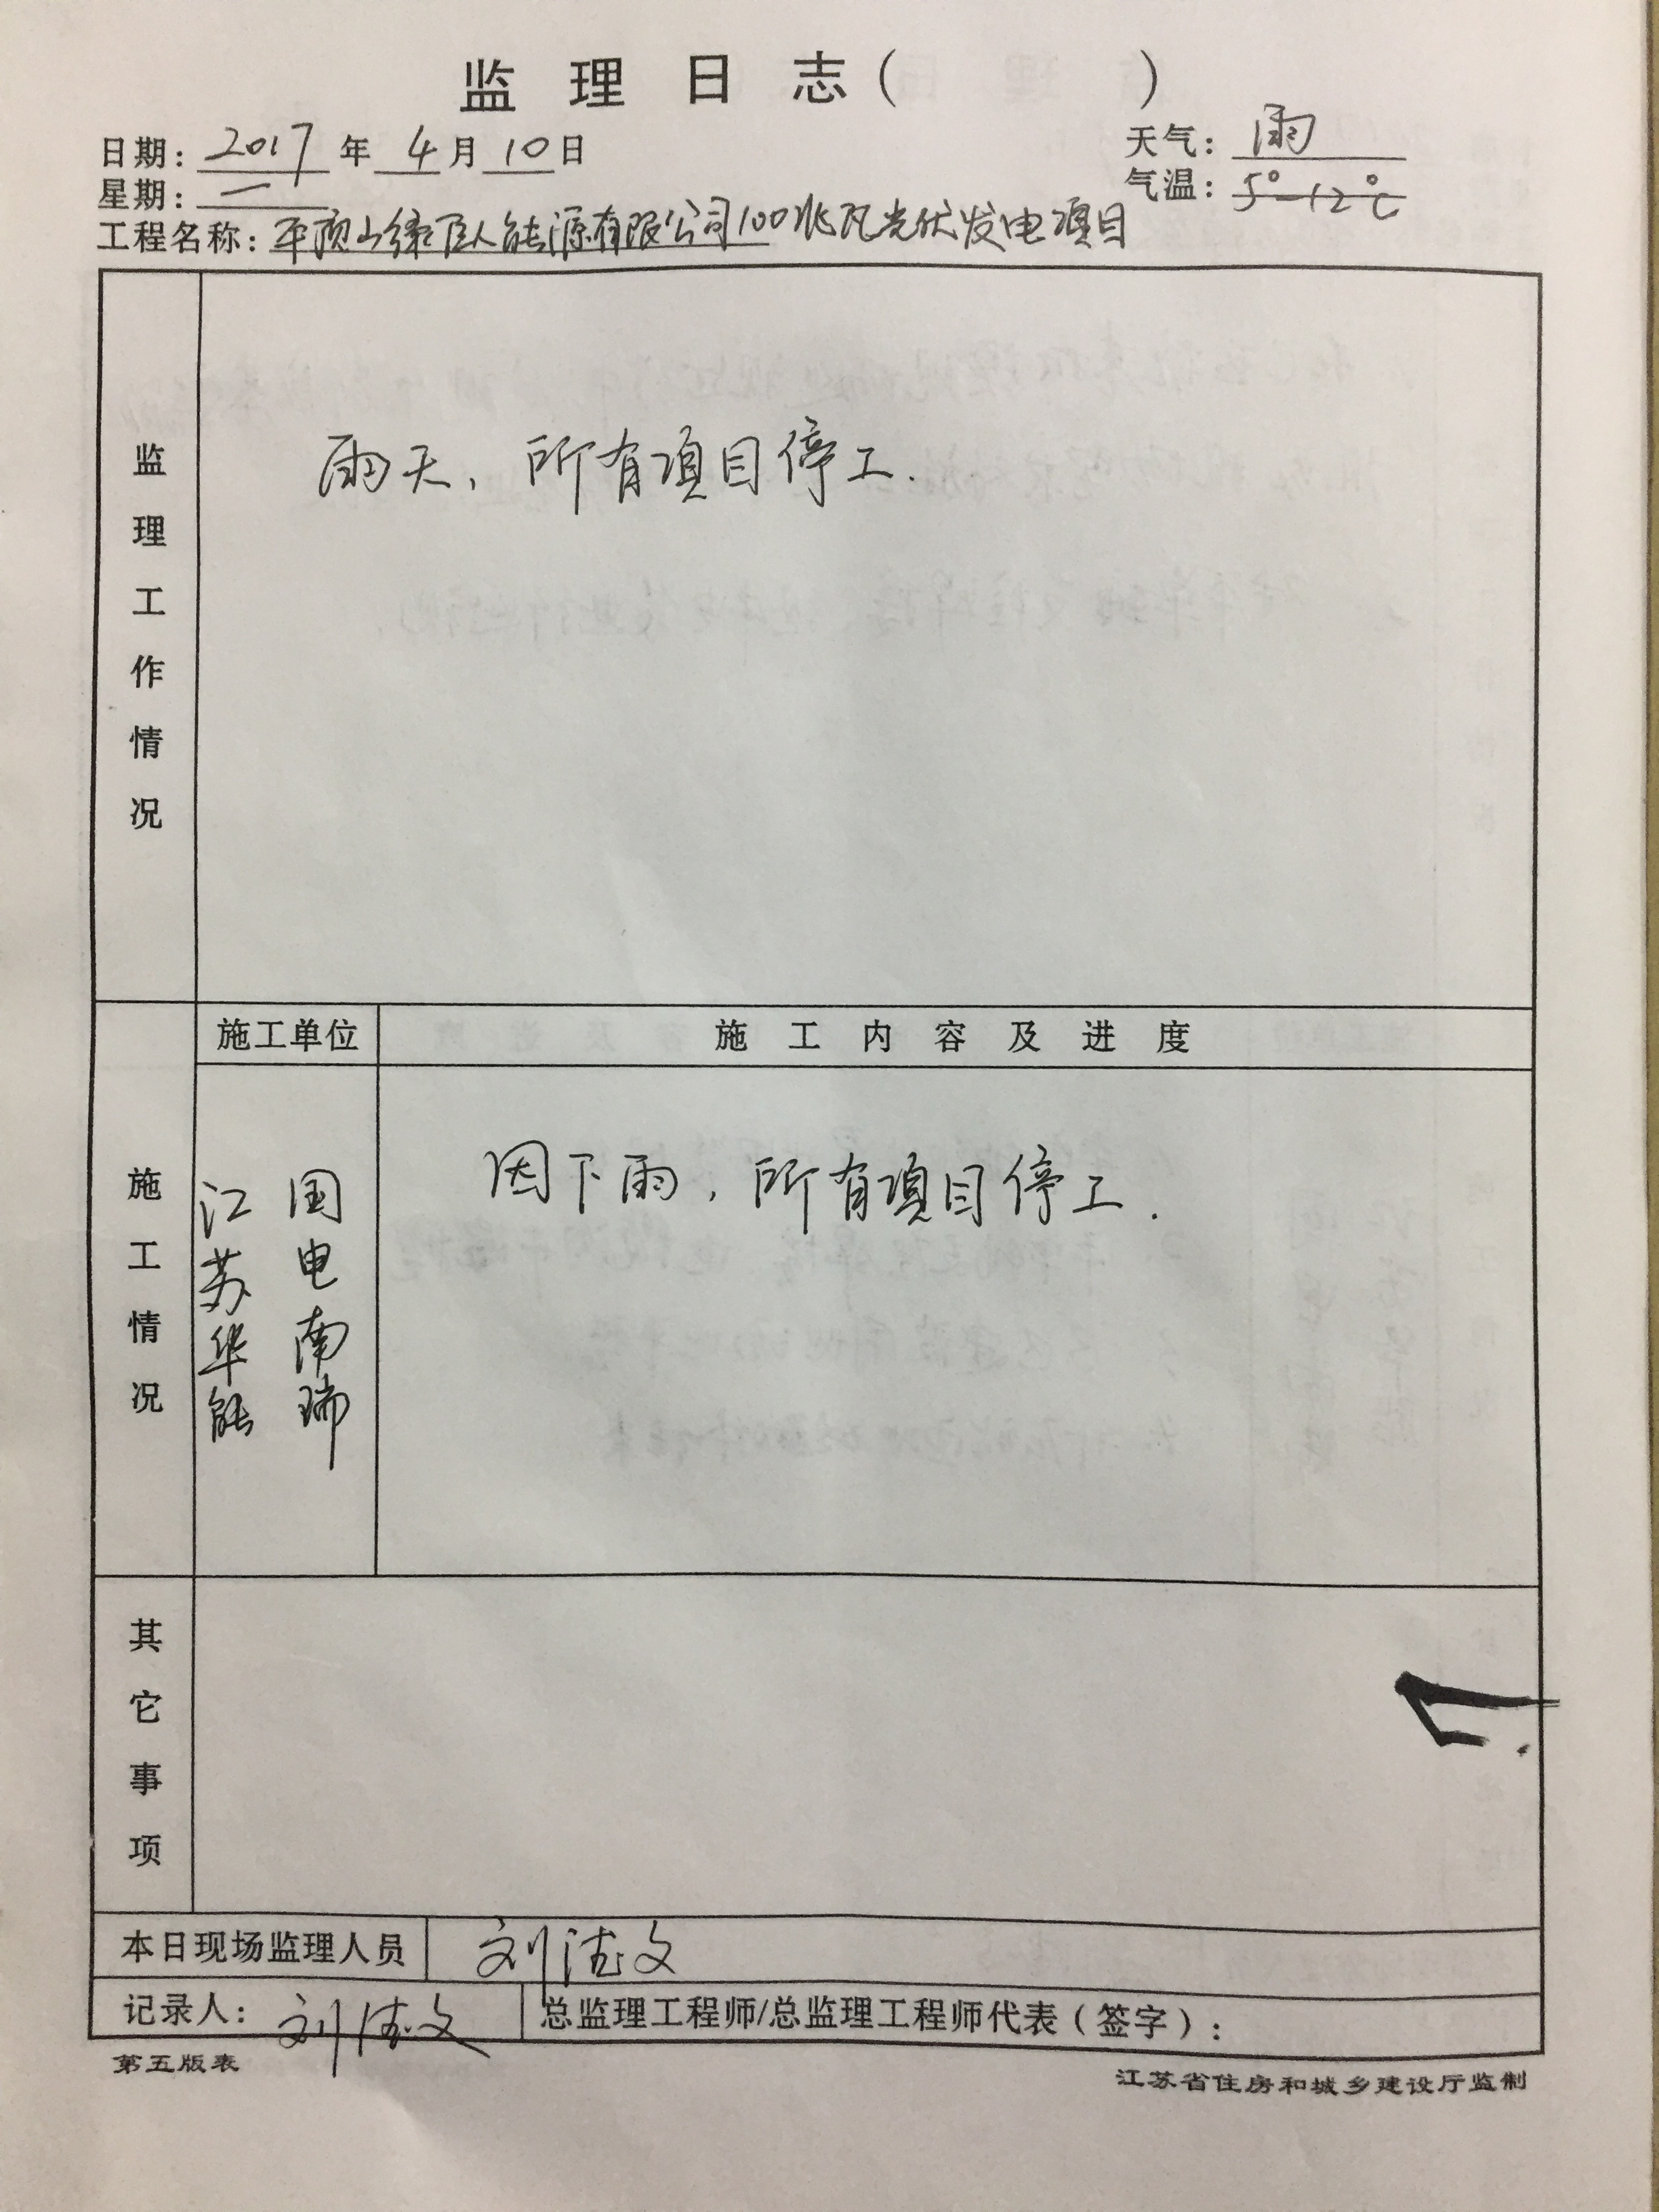 监理日志(	)
日期: 2017 年 4 月 10 日
天气: 雨
星期: 一
气温: 5°-12℃
工程名称: 平顶山绿臥能源有限公司100兆瓦光伏发电项目
监理工作情况
雨天、所有项目停工.
施工单位
施工内容及进度
施工情况
国电南瑞
江苏华能
因下雨,所有项目停工.
其它事项
本日现场监理人员
刘德文
记录人: 刘德文
总监理工程师/总监理工程师代表(签字):
第五版表
江苏省住房和城乡建设厅监制